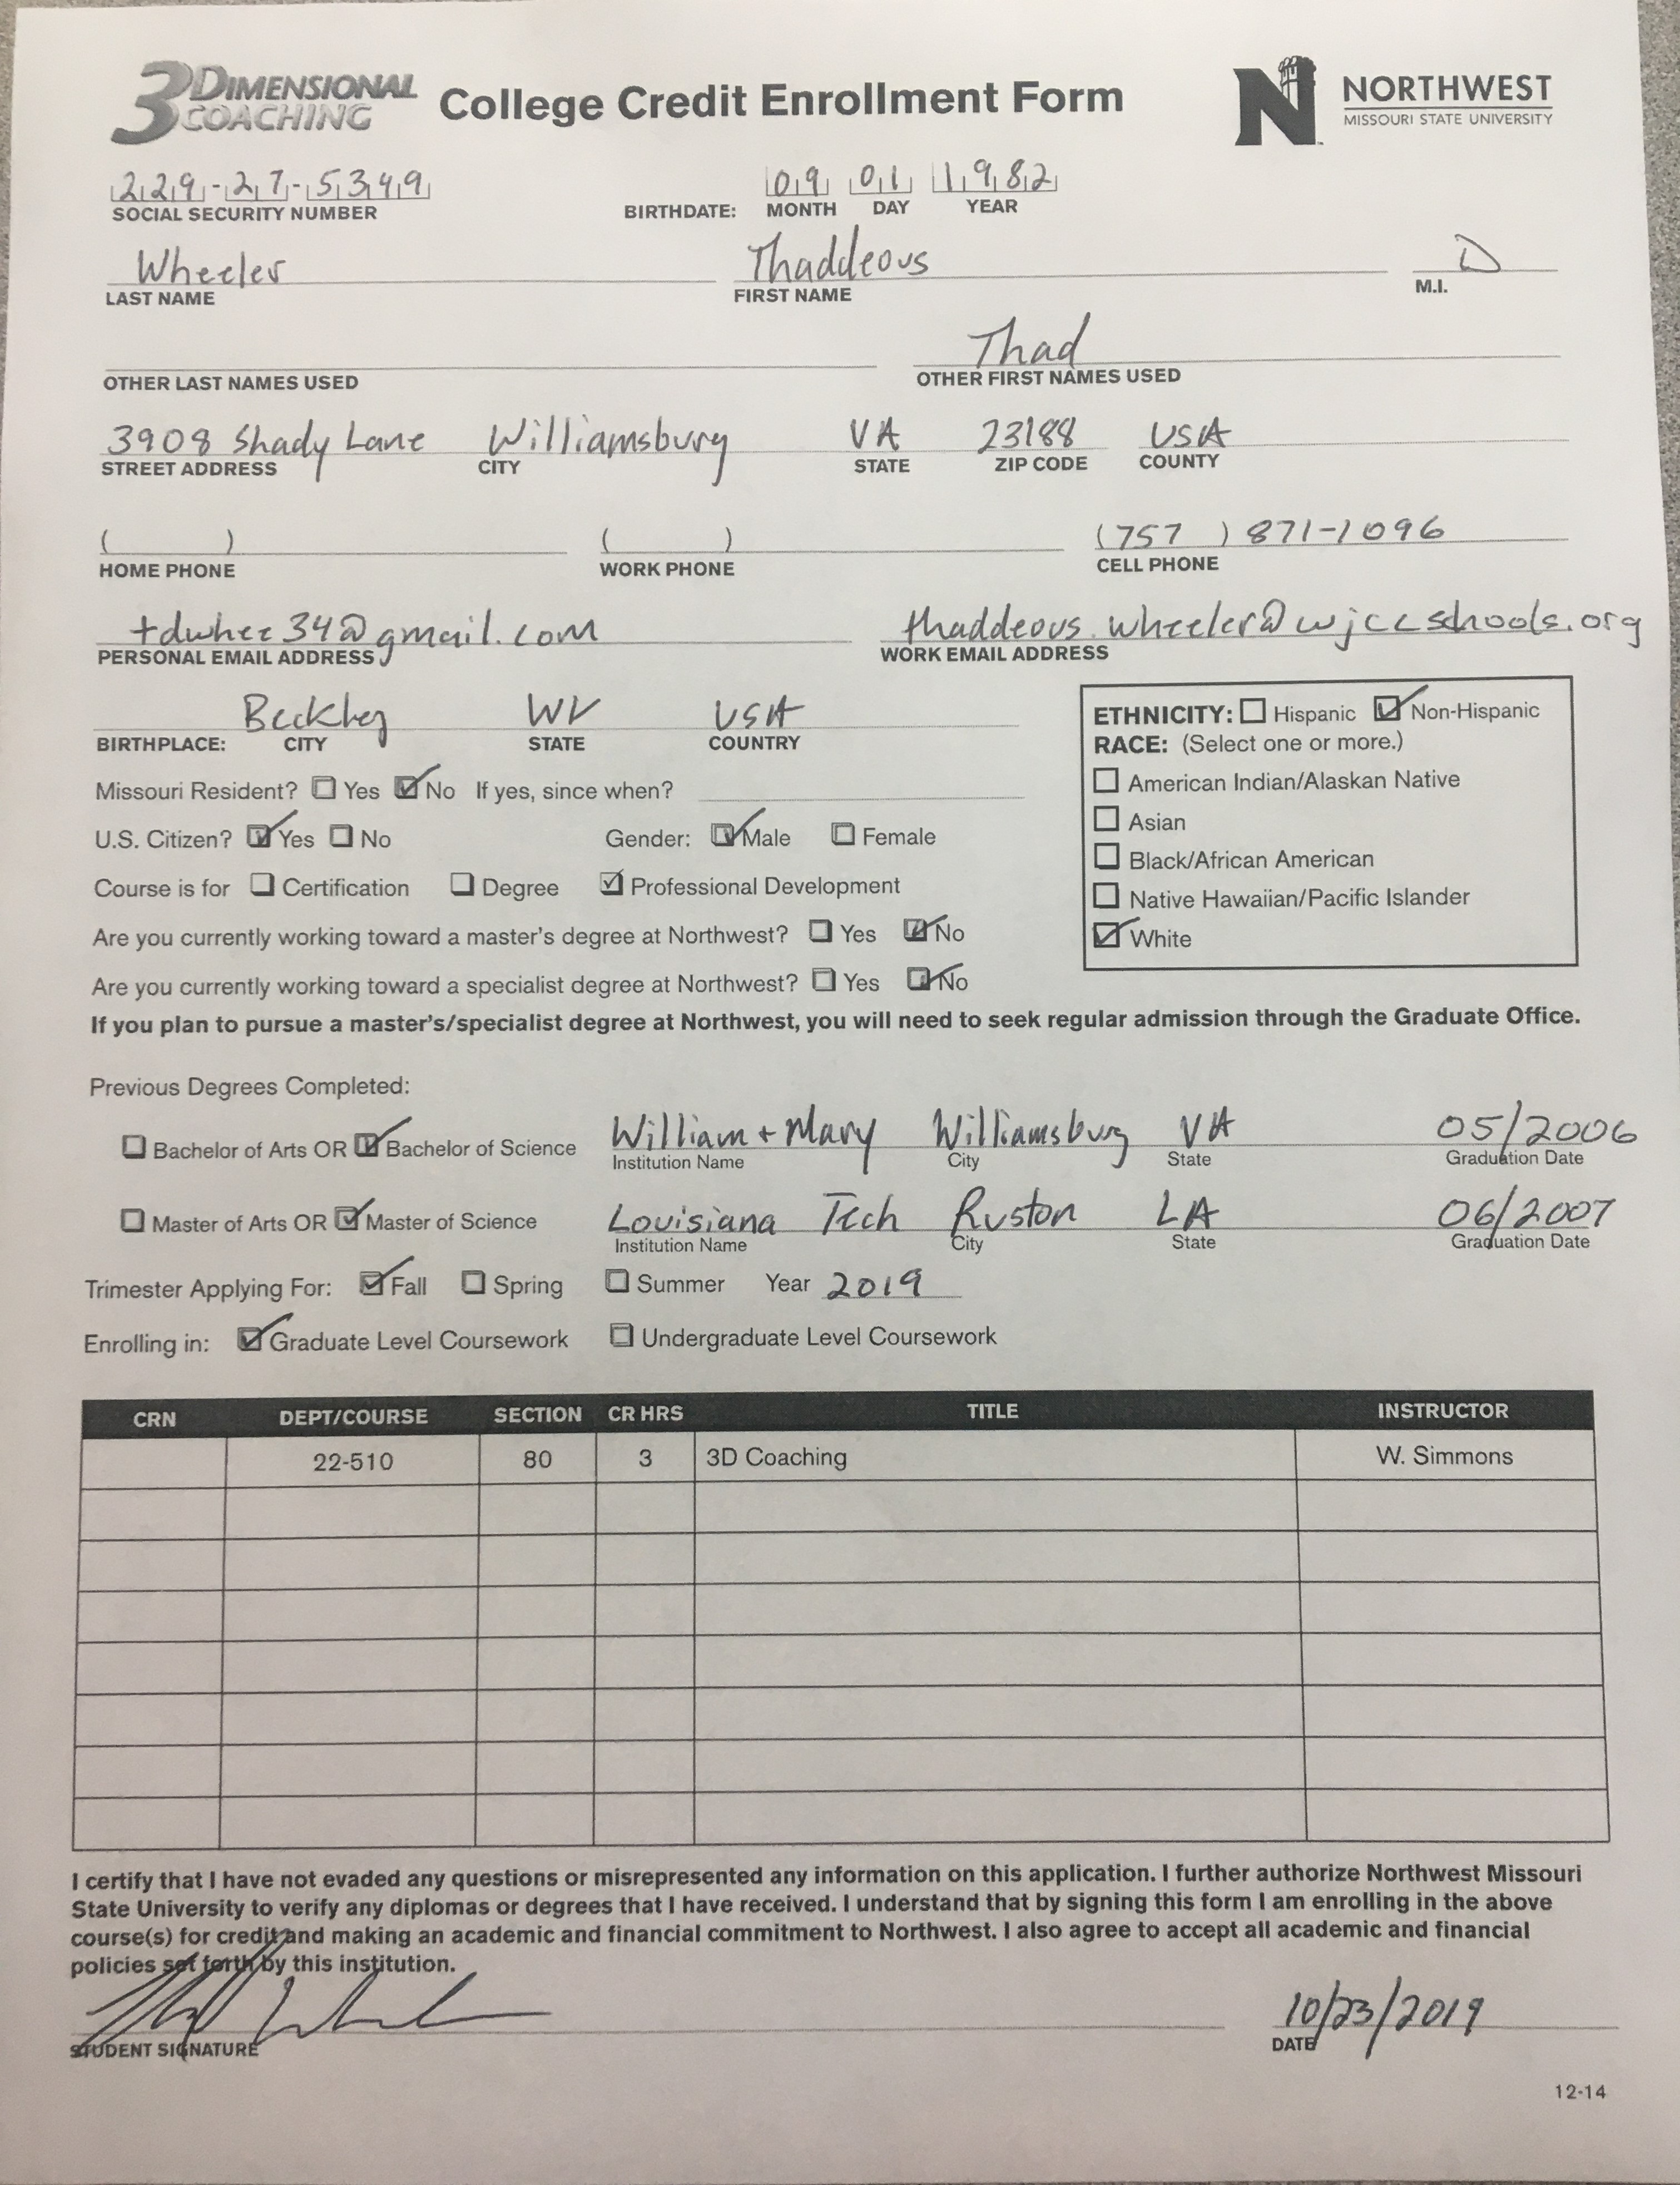 3 DIMENSIONAL COACHING College Credit Enrollment Form N NORTHWEST
MISSOURI STATE UNIVERSITY
229-27-5349 09 01 1982
SOCIAL SECURITY NUMBER BIRTHDATE: MONTH DAY YEAR
Wheeler Thaddeous D
LAST NAME FIRST NAME M.I.
Thad
OTHER LAST NAMES USED OTHER FIRST NAMES USED
3908 Shady Lane Williamsburg VA 23188 USA
STREET ADDRESS CITY STATE ZIP CODE COUNTY
( ) ( ) (757) 871-1096
HOME PHONE WORK PHONE CELL PHONE
tdwhee34@gmail.com thaddeous.wheeler@wjccschools.org
PERSONAL EMAIL ADDRESS WORK EMAIL ADDRESS
Beckley WV USA
BIRTHPLACE: CITY STATE COUNTRY
ETHNICITY: Hispanic Non-Hispanic
RACE: (Select one or more.)
American Indian/Alaskan Native
Asian
Black/African American
Native Hawaiian/Pacific Islander
White
Missouri Resident? Yes No If yes, since when?
U.S. Citizen? Yes No Gender: Male Female
Course is for Certification Degree Professional Development
Are you currently working toward a master's degree at Northwest? Yes No
Are you currently working toward a specialist degree at Northwest? Yes No
If you plan to pursue a master's/specialist degree at Northwest, you will need to seek regular admission through the Graduate Office.
Previous Degrees Completed:
Bachelor of Arts OR Bachelor of Science William + Mary Williamsburg VA 05/2006
Institution Name City State Graduation Date
Master of Arts OR Master of Science Louisiana Tech Ruston LA 06/2007
Institution Name City State Graduation Date
Trimester Applying For: Fall Spring Summer Year 2019
Enrolling in: Graduate Level Coursework Undergraduate Level Coursework
CRN DEPT/COURSE SECTION CR HRS TITLE INSTRUCTOR
22-510 80 3 3D Coaching W. Simmons
I certify that I have not evaded any questions or misrepresented any information on this application. I further authorize Northwest Missouri
State University to verify any diplomas or degrees that I have received. I understand that by signing this form I am enrolling in the above
course(s) for credit and making an academic and financial commitment to Northwest. I also agree to accept all academic and financial
policies set forth by this institution.
10/23/2019
STUDENT SIGNATURE DATE
12-14